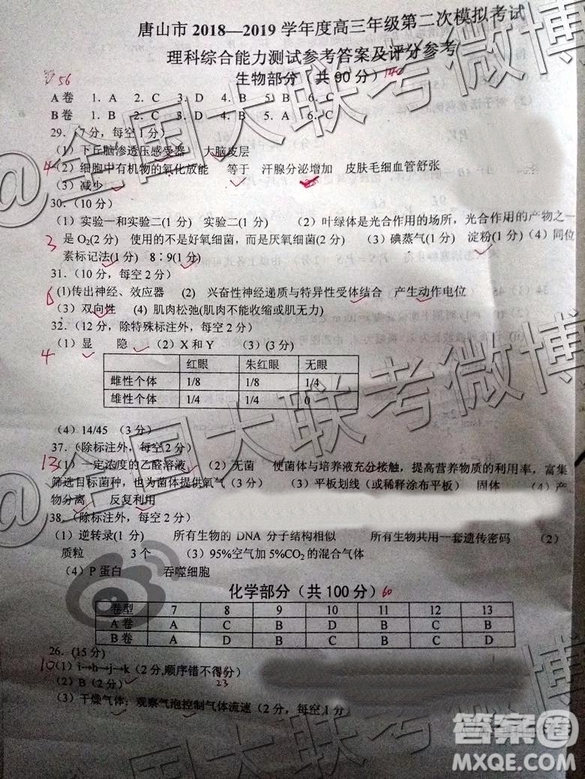 唐山市 2018—2019 学年度高三年级第二次模拟考试
理科综合能力测试参考答案及评分参考
生物部分（共 90 分）
56
A 卷 1. A 2. C 3. D 4. B 5. B 6. C
B 卷 1. A 2. C 3. D 4. B 5. A 6. C
29.（7 分，每空 1 分）
（1）下丘脑渗透压感受器 大脑皮层
4（2）细胞中有机物的氧化放能 等于 汗腺分泌增加 皮肤毛细血管舒张
（3）减少
30.（10 分）
（1）实验一和实验二(1 分) 实验二(1 分) （2）叶绿体是光合作用的场所，光合作用的产物之一
3 是 O₂(2 分) 使用的不是好氧细菌，而是厌氧细菌(2 分) （3）碘蒸气(1 分) 淀粉(1 分)（4）同位
素标记法(1 分) 8∶9(1 分)
31.（10 分，每空 2 分）
(1)传出神经、效应器 (2) 兴奋性神经递质与特异性受体结合 产生动作电位
（3）双向性 （4）肌肉松弛(肌肉不能收缩或肌无力)
32.（12 分，除特殊标注外，每空 2 分）
4（1）显 隐（2）X 和 Y （3）(3 分)
红眼 朱红眼 无眼
雌性个体 1/8 1/8 1/4
雄性个体 1/4 1/4 0
（4）14/45 （3 分）
37.（除标注外，每空 2 分）
13（1）一定浓度的乙醛溶液 （2）无菌 使菌体与培养液充分接触，提高营养物质的利用率，富集
筛选目标菌种，也为菌体提供氧气（3 分） （3）平板划线（或稀释涂布平板） 固体 （4）产
物分离 反复利用
38.（除标注外，每空 2 分）
（1）逆转录(1 分) 所有生物的 DNA 分子结构相似 所有生物共用一套遗传密码 （2）
质粒 3 个 （3）95%空气加 5%CO₂的混合气体
（4）P 蛋白 吞噬细胞
化学部分（共 100 分）60
卷型 7 8 9 10 11 12 13
A 卷 A C D D B C B
B 卷 D C B C A D B
26.（15 分）
10（1）i→h→j→k（2 分,顺序错不得分）
（2）B（2 分） 23
（3）干燥气体；观察气泡控制气体流速（2 分，每空 1 分）
@全国大联考微博
答案卷
MXQE.COM